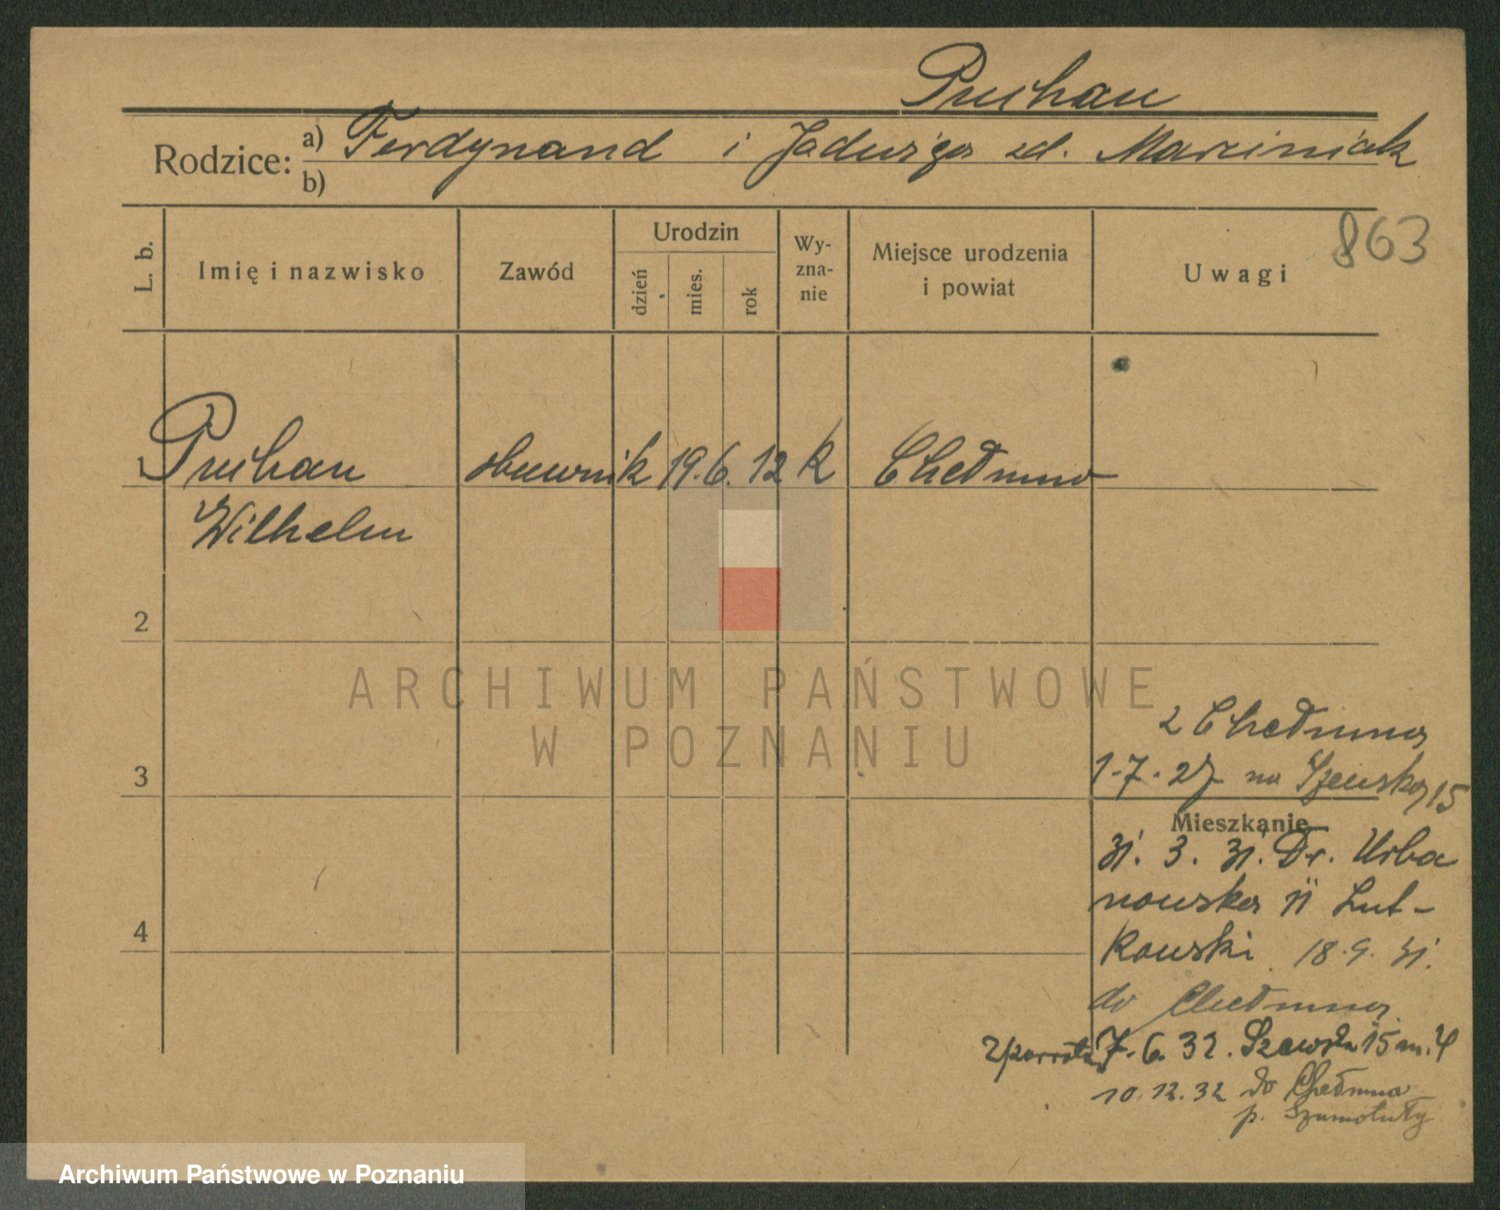 Puchau
Rodzice: a) Ferdynand i Jadwiga zd. Marciniak
b)
863
L. b.
Imię i nazwisko
Zawód
Urodzin
dzień
mies.
rok
Wy-
zna-
nie
Miejsce urodzenia
i powiat
Uwagi
1 Puchau obuwnik 19. 6. 12 k Chełmno
Wilhelm
2
ARCHIWUM PAŃSTWOWE
W POZNANIU
z Chełmna
3
1.7.27 na Szewską 15
Mieszkanie
31. 3. 31. Dr. Urba
nowska 11 Lut-
4
kowski 18.9. 31.
do Chełmna
7. 6. 32. Szewska 15 m. 4
10. 12. 32 do Chełmna
p. Szamotuły
Archiwum Państwowe w Poznaniu